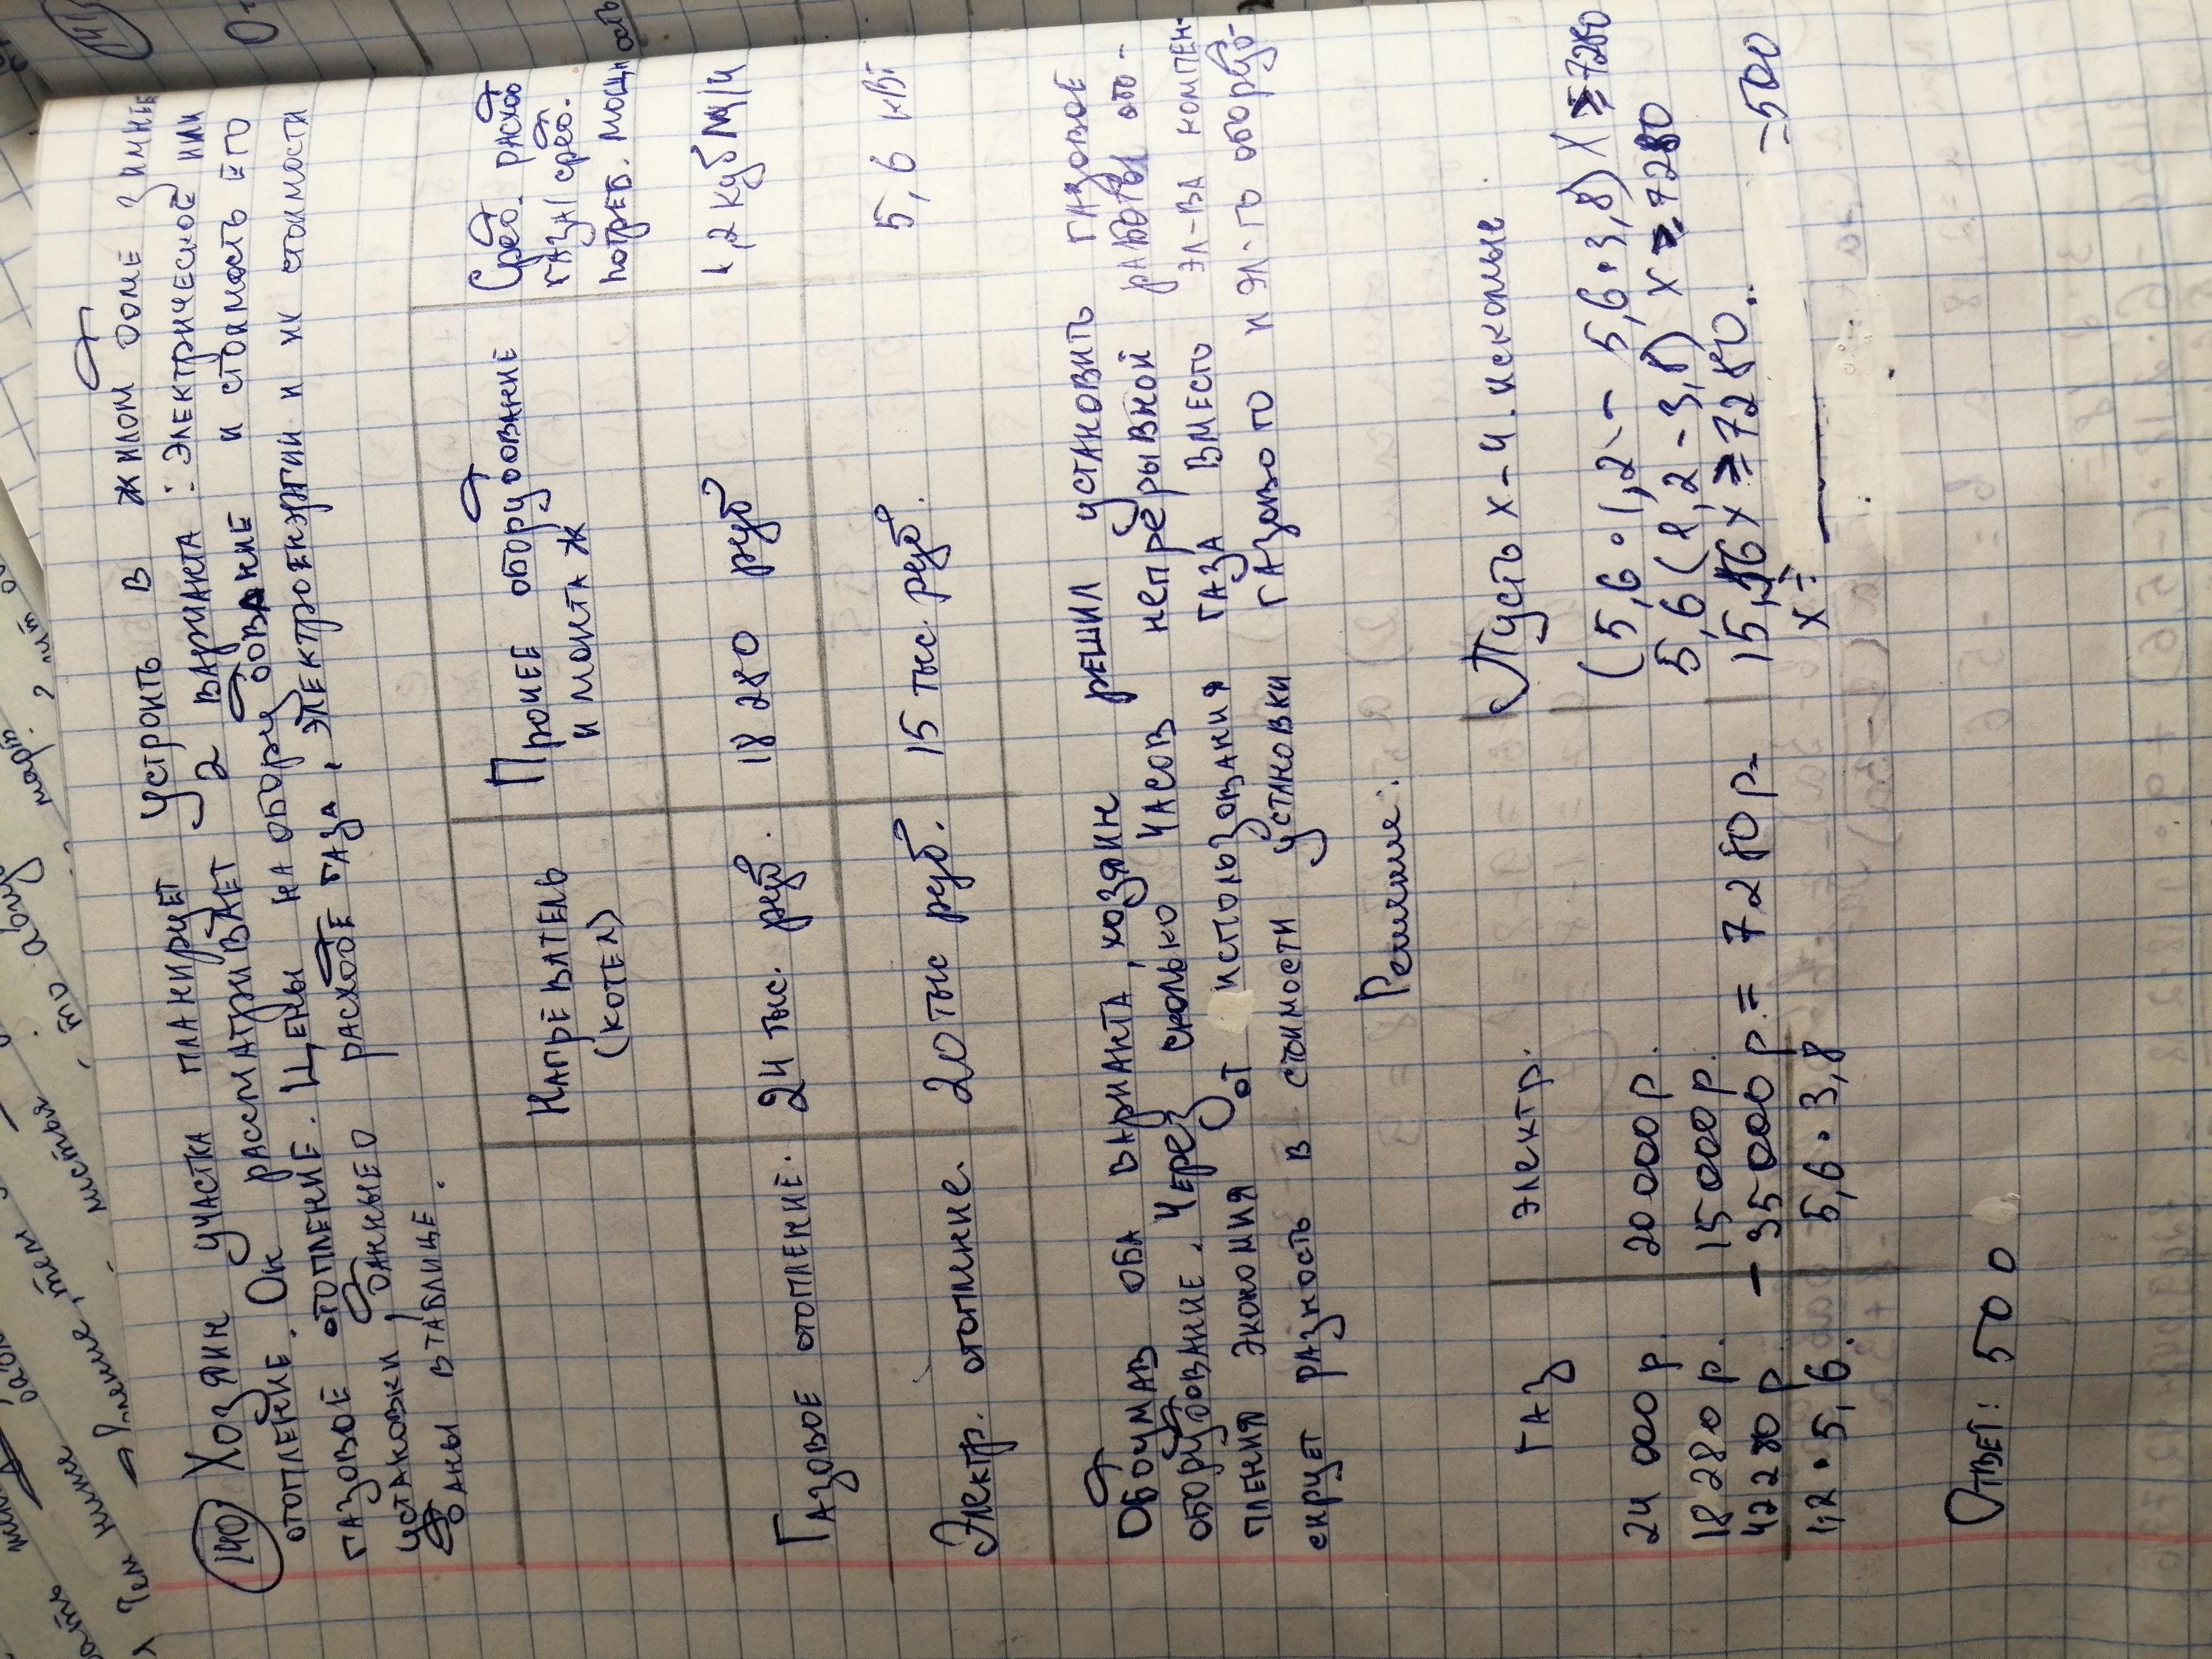 140 Хозяин участка планирует устроить в жилом доме зимнее
отопление. Он рассматривает 2 варианта: электрическое или
газовое отопление. Цены на оборудование и стоимость его
установки, данные о расходе газа, электроенжгии и их стоимости
даны в таблице.
Нагреватель
(котел)
Прочее оборудование
и монтаж
Сред. расход
газа/сред.
потреб. мощность
Газовое отопление.
24 тыс. руб.
18 280 руб
1,2 куб м/ч
Электр. отопление.
20 тыс руб.
15 тыс. руб.
5,6 кВт
Обдумав оба варианта, хозяин решил установить газовое
оборудование. Через сколько часов непрерывной работы ото-
пления экономия от использования газа вместо эл-ва компен-
сирует разность в стоимости установки газового и эл-го оборудо-
Решение:
газ
электр.
Пусть х - ч. искомые.
24 000 р.
20 000 р.
(5,6 · 1,2 - 5,6 · 3,8) х = 7280
18 280 р.
15 000 р.
5,6 (1,2 - 3,8) х = 7280
42280 р - 35 000 р = 7280 р.
15,56 х = 7280.
1,2 · 5,6.
5,6 · 3,8
х =
= 500
Ответ: 500
141